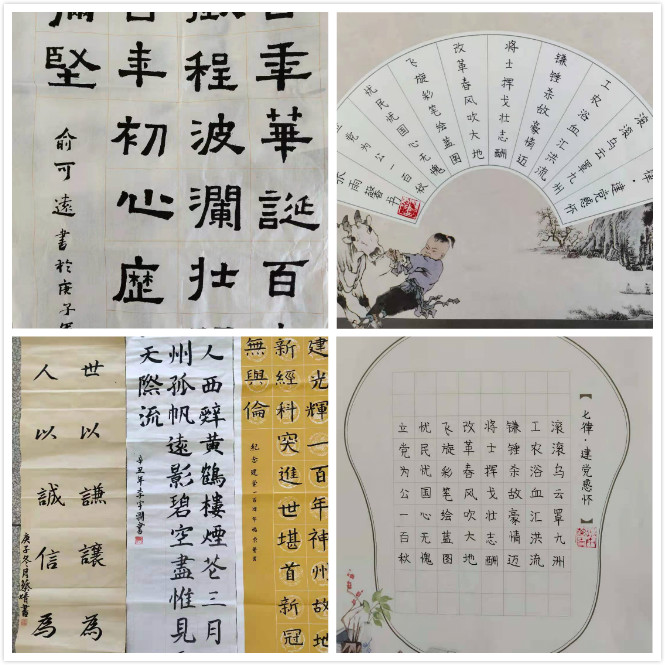 年華誕百
程波瀾壯
年初心歷
堅
俞可遠書於庚子
律·建党感怀
滚滚乌云罩九洲
工农浴血汇洪流
镰锤杀敌豪情迈
将士挥戈壮志酬
改革春风吹大地
飞旋彩笔绘蓝图
忧民忧国心无愧
立党为公一百秋
建光輝一百年神州故地
新經科突進世堪首新冠
無與倫
紀念建党一百周年
人西辭黃鶴樓煙花三月
州孤帆遠影碧空盡惟見
天際流
辛丑年李宇潤書
世以謙讓為
人以誠信為
庚子冬月
七律·建党感怀
滚滚乌云罩九洲
工农浴血汇洪流
镰锤杀敌豪情迈
将士挥戈壮志酬
改革春风吹大地
飞旋彩笔绘蓝图
忧民忧国心无愧
立党为公一百秋